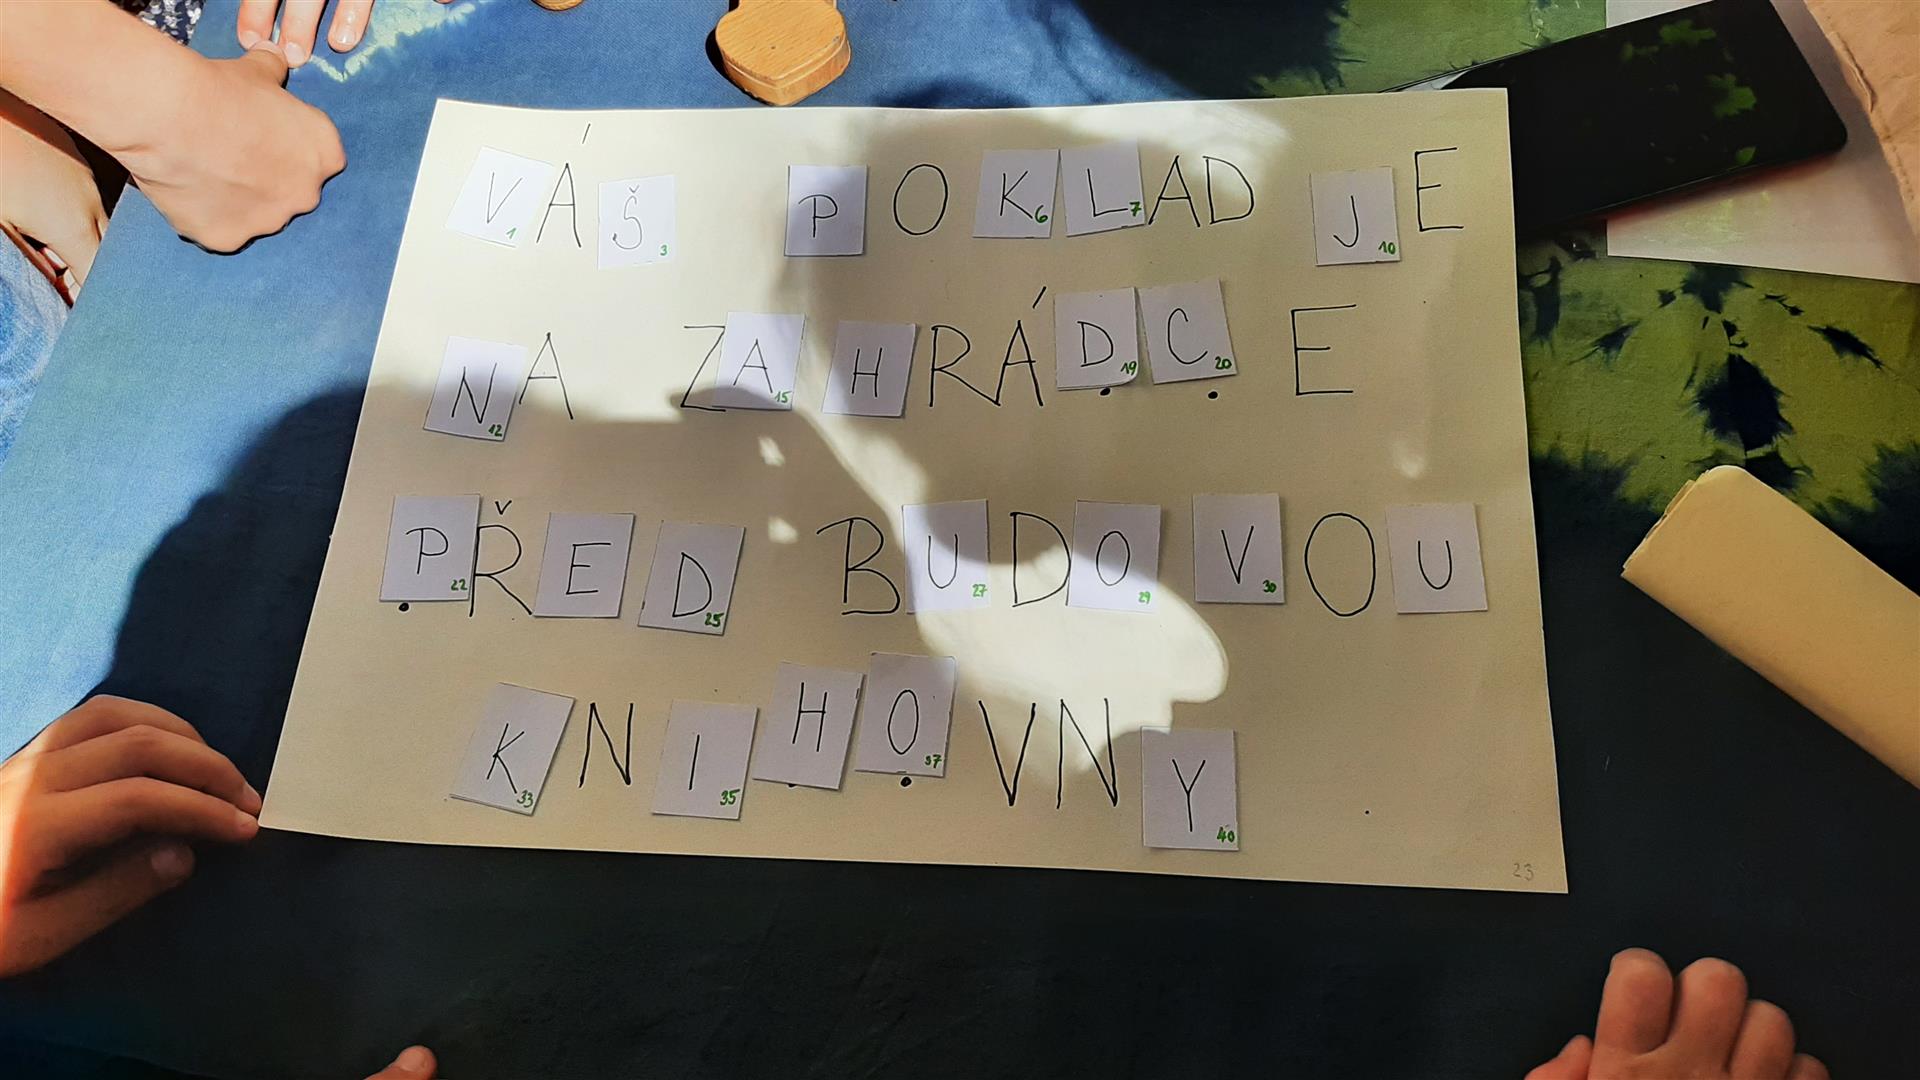 VÁŠ POKLAD JE
NA ZAHRÁDCE
PŘED BUDOVOU
KNIHOVNY
1 3 6 7 10
12 15 19 20
22 25 27 29 30
33 35 37 40
23